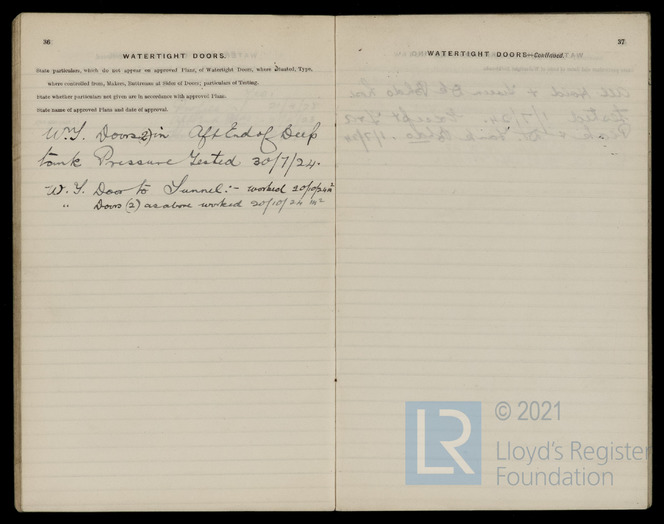 36
WATERTIGHT DOORS.
State particulars, which do not appear on approved Plans, of Watertight Doors, where situated, Type,
where controlled from, Makers, Batteries at Sides of Doors; particulars of Testing.
State whether particulars not given are in accordance with approved Plans.
State name of approved Plans and date of approval.
W.T. Doors (2) in Aft End of Deep
tank Pressure Tested 30/7/24.
W.T. Door to Tunnel:- worked 20/10/24
" Doors (2) as above worked 20/10/24
37
WATERTIGHT DOORS—Continued.
LR
© 2021
Lloyd's Register
Foundation